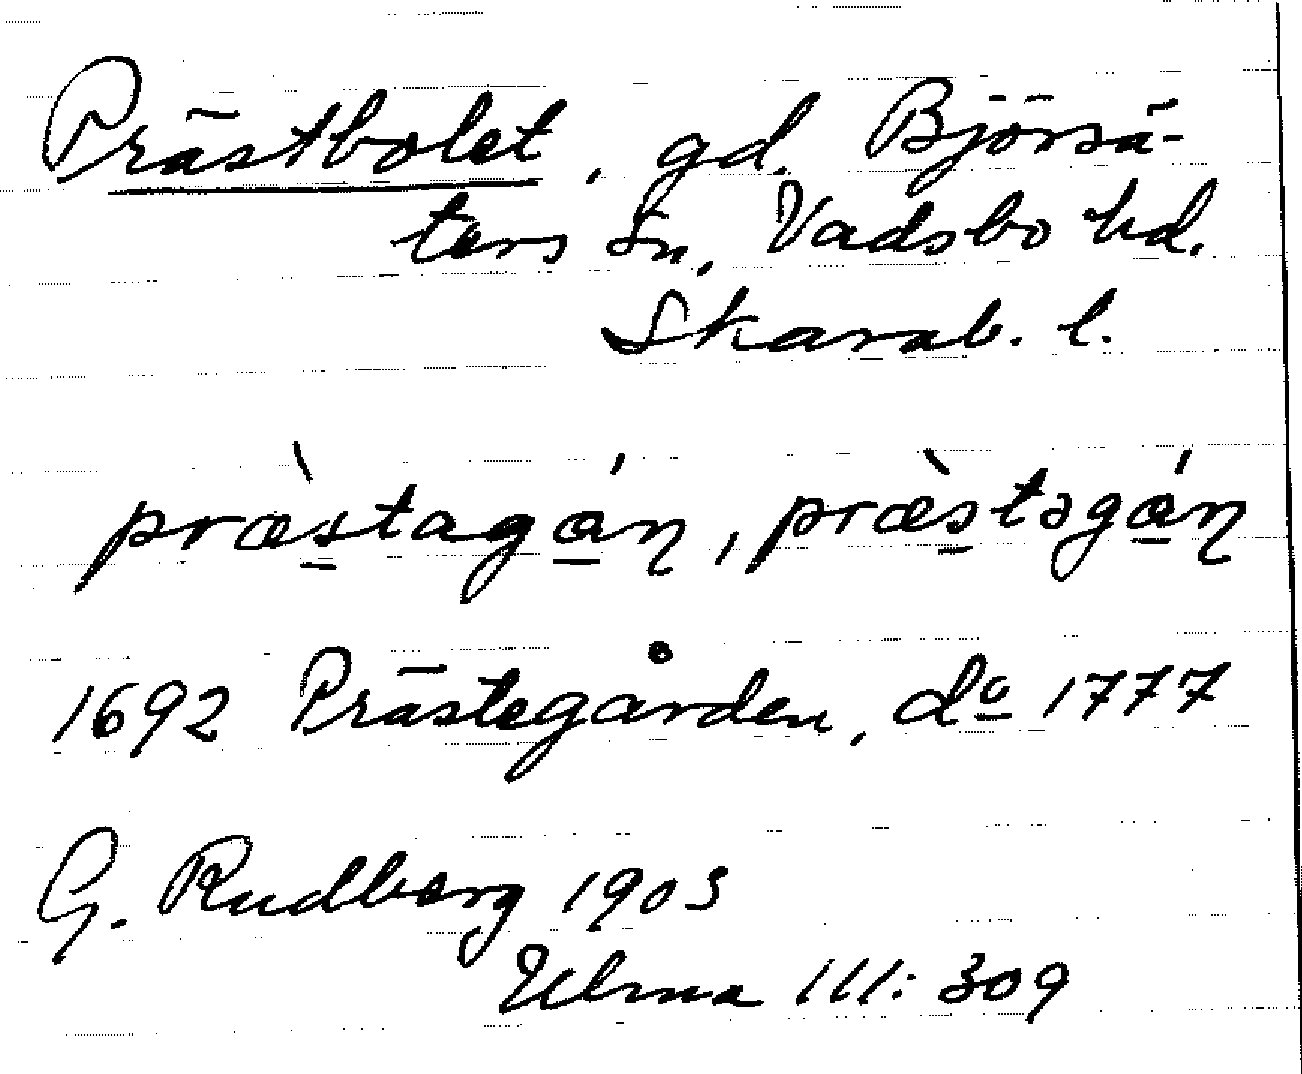 Prästbolet, gd. Björsä-
ters sn, Vadsbo hd.
Skarab. l.
præ̀stagán, præ̀stəgán
1692 Prästegården, dº 1777
G. Rudberg 1903
Ulma 111: 309